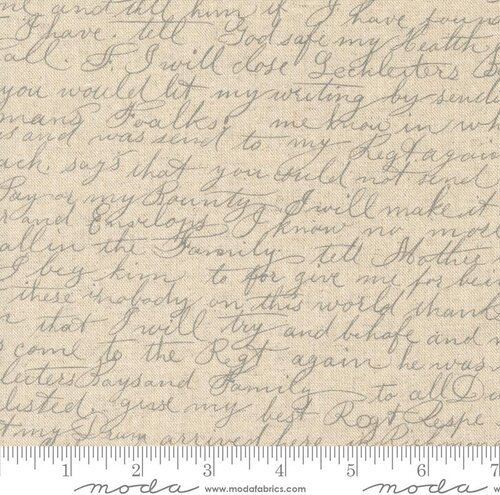 and tell him if I have foun
I have. tell God safe my Health
all. F. I will close Lechleiters
you would let my writing by send
mans Foalks; me know in wh
s and was send to my Regt again
ack. says that you could not send
Pay or my Bounty, I will make it
r and Envelops I know no more
all in the Family tell Mother
I beg him to for give me for bei
these is nobody on this world thank
n that I will try and behafe and
s come to the Regt again he was
leiters Boys and Family to all
listed, give my best Regt Respe
my arrived here in
1 2 3 4 5 6 7
moda www.modafabrics.com moda